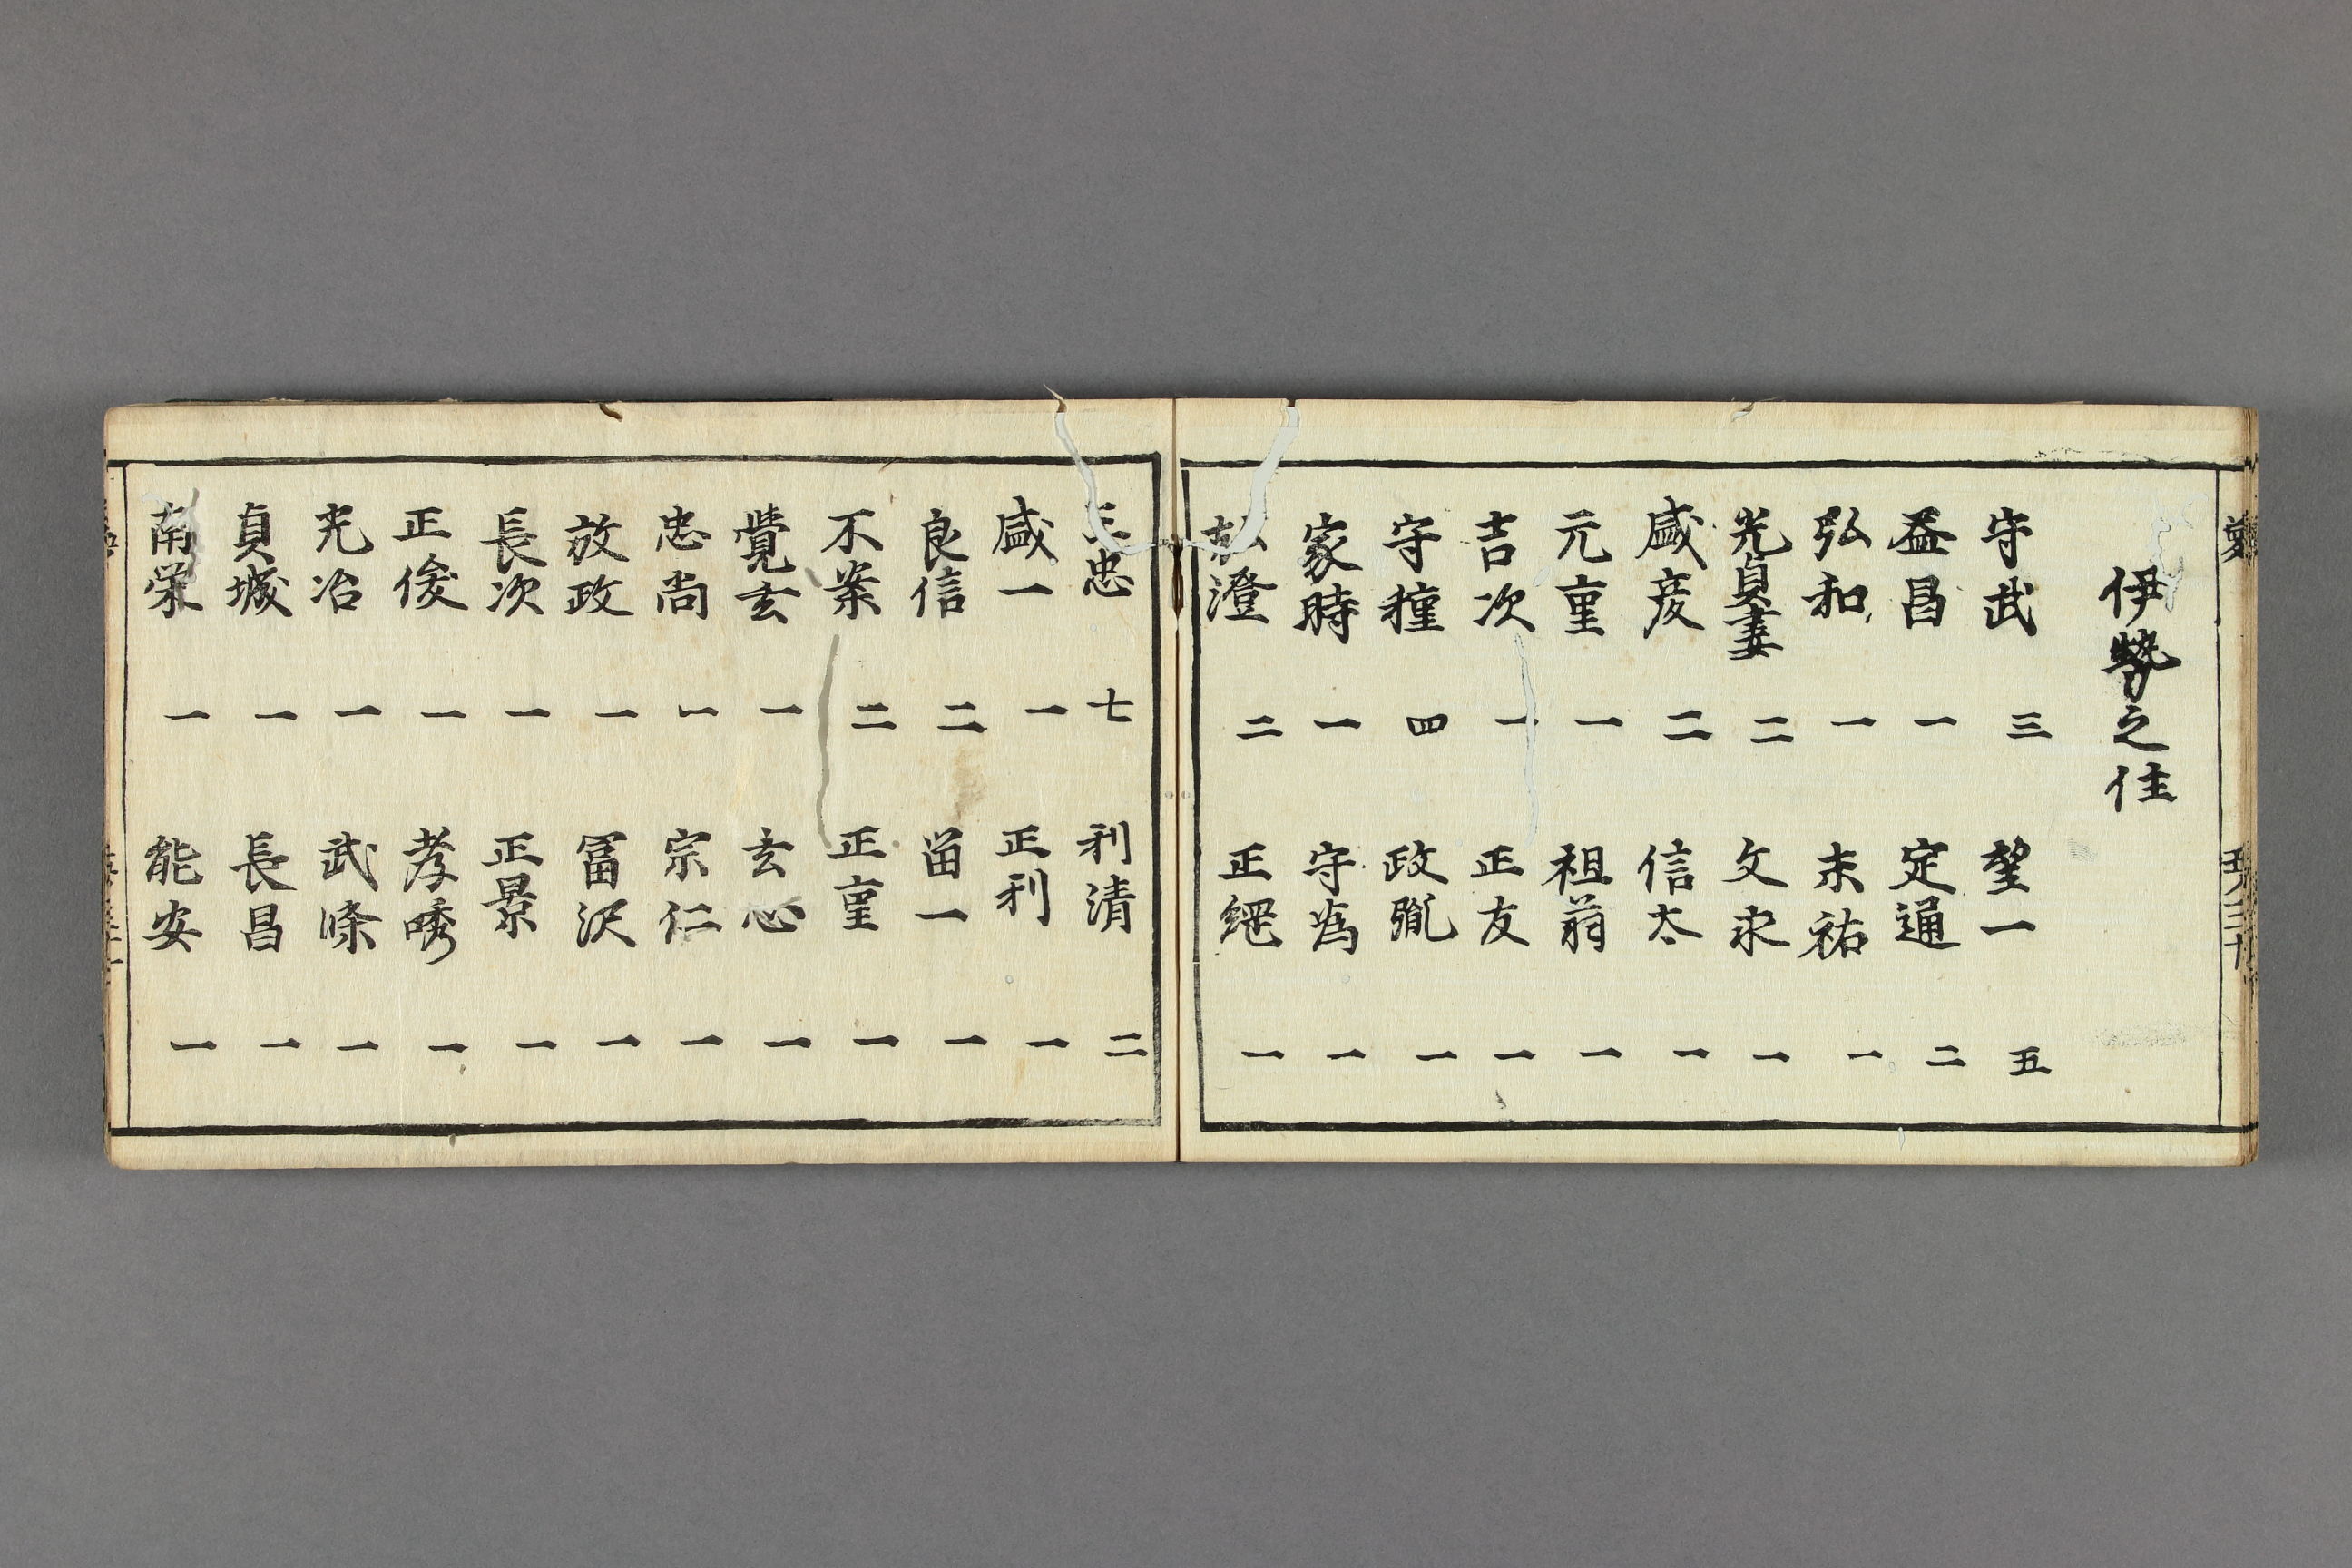 伊勢之住
守武 三 望一 五
益昌 一 定通 二
弘和 一 末祐 一
光貞妻 二 文永 一
盛彦 二 信太 一
元重 一 祖翁 一
吉次 一 正友 一
守種 四 政胤 一
家時 一 守為 一
澄 二 正綱 一
忠 七 利清 二
盛一 一 正利 一
良信 二 留一 一
不案 二 正重 一
覚玄 一 玄心 一
忠尚 一 宗仁 一
放政 一 冨沢 一
長次 一 正景 一
正俊 一 孝 一
光治 一 武條 一
貞城 一 長昌 一
南栄 一 能安 一